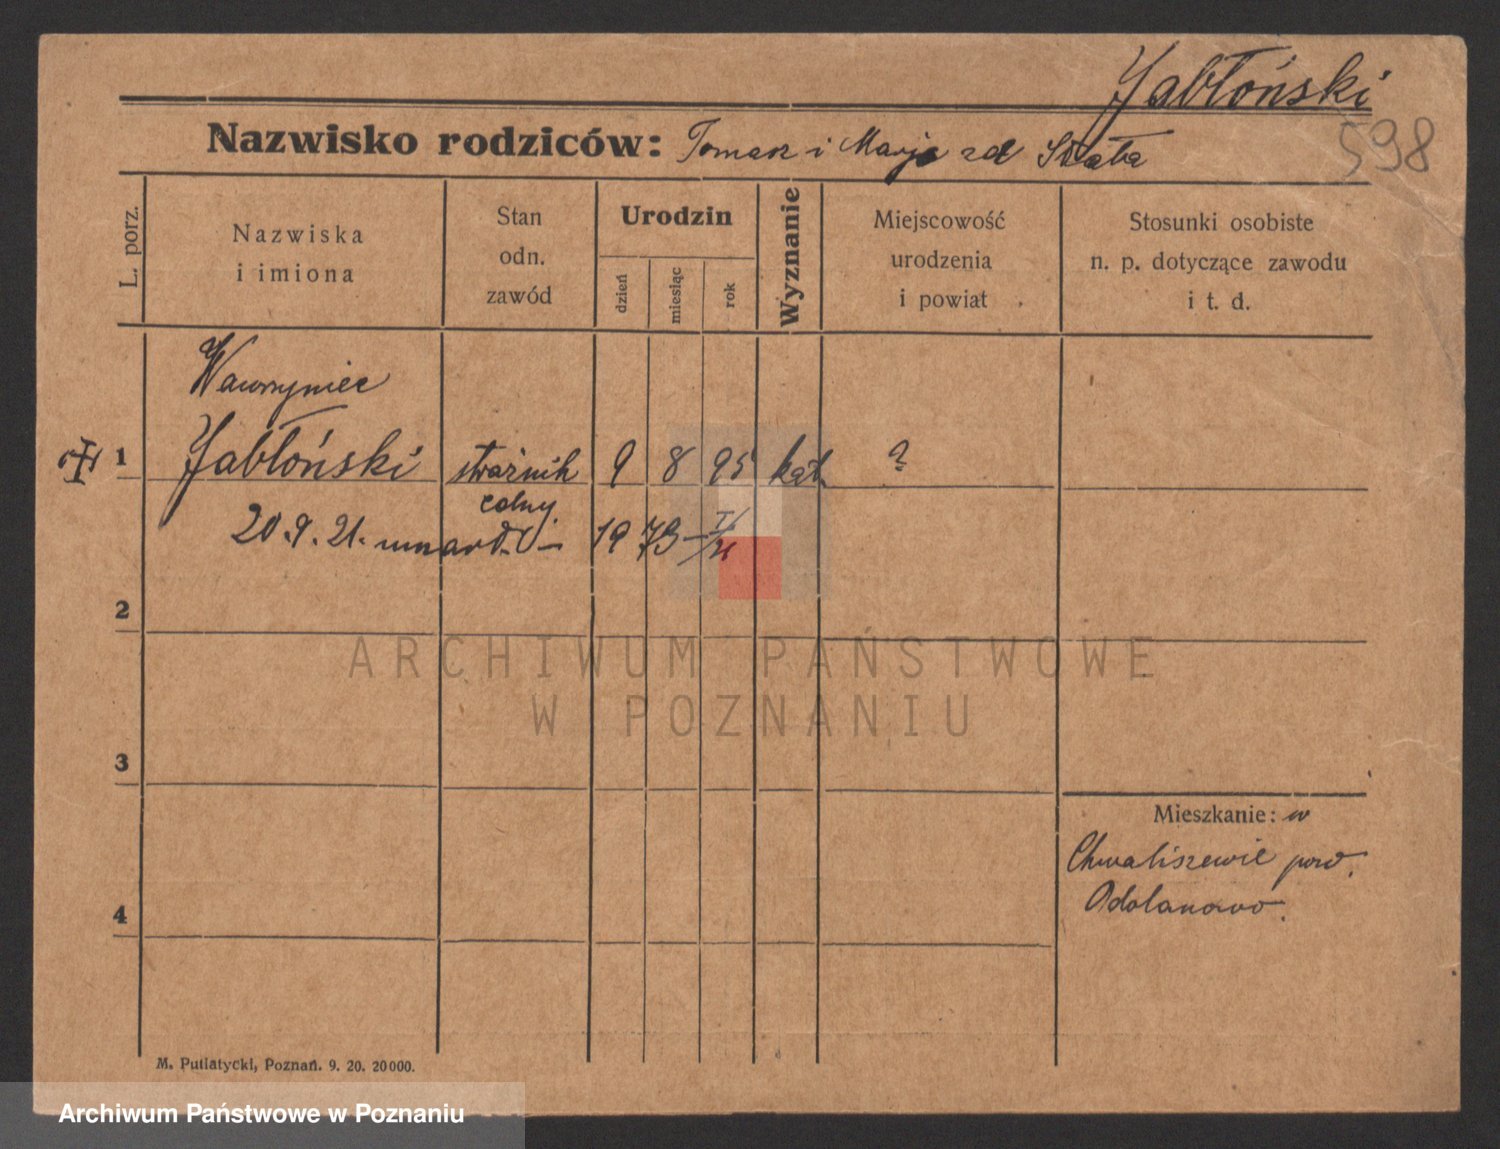 Jabłoński
598
Nazwisko rodziców: Tomasz i Marja zd
L. porz.
Nazwiska
i imiona
Stan
odn.
zawód
Urodzin
dzień
miesiąc
rok
Wyznanie
Miejscowość
urodzenia
i powiat
Stosunki osobiste
n. p. dotyczące zawodu
i t. d.
Wawrzyniec
1 Jabłoński strażnik 9 8 95 kat. ?
celny.
20.9.21. umarł. – 19 73 – I/21
2
ARCHIWUM PAŃSTWOWE
W POZNANIU
3
Mieszkanie: w
Chwaliszewie pow.
Odolanowo.
4
M. Putiatycki, Poznań. 9. 20. 20000.
Archiwum Państwowe w Poznaniu